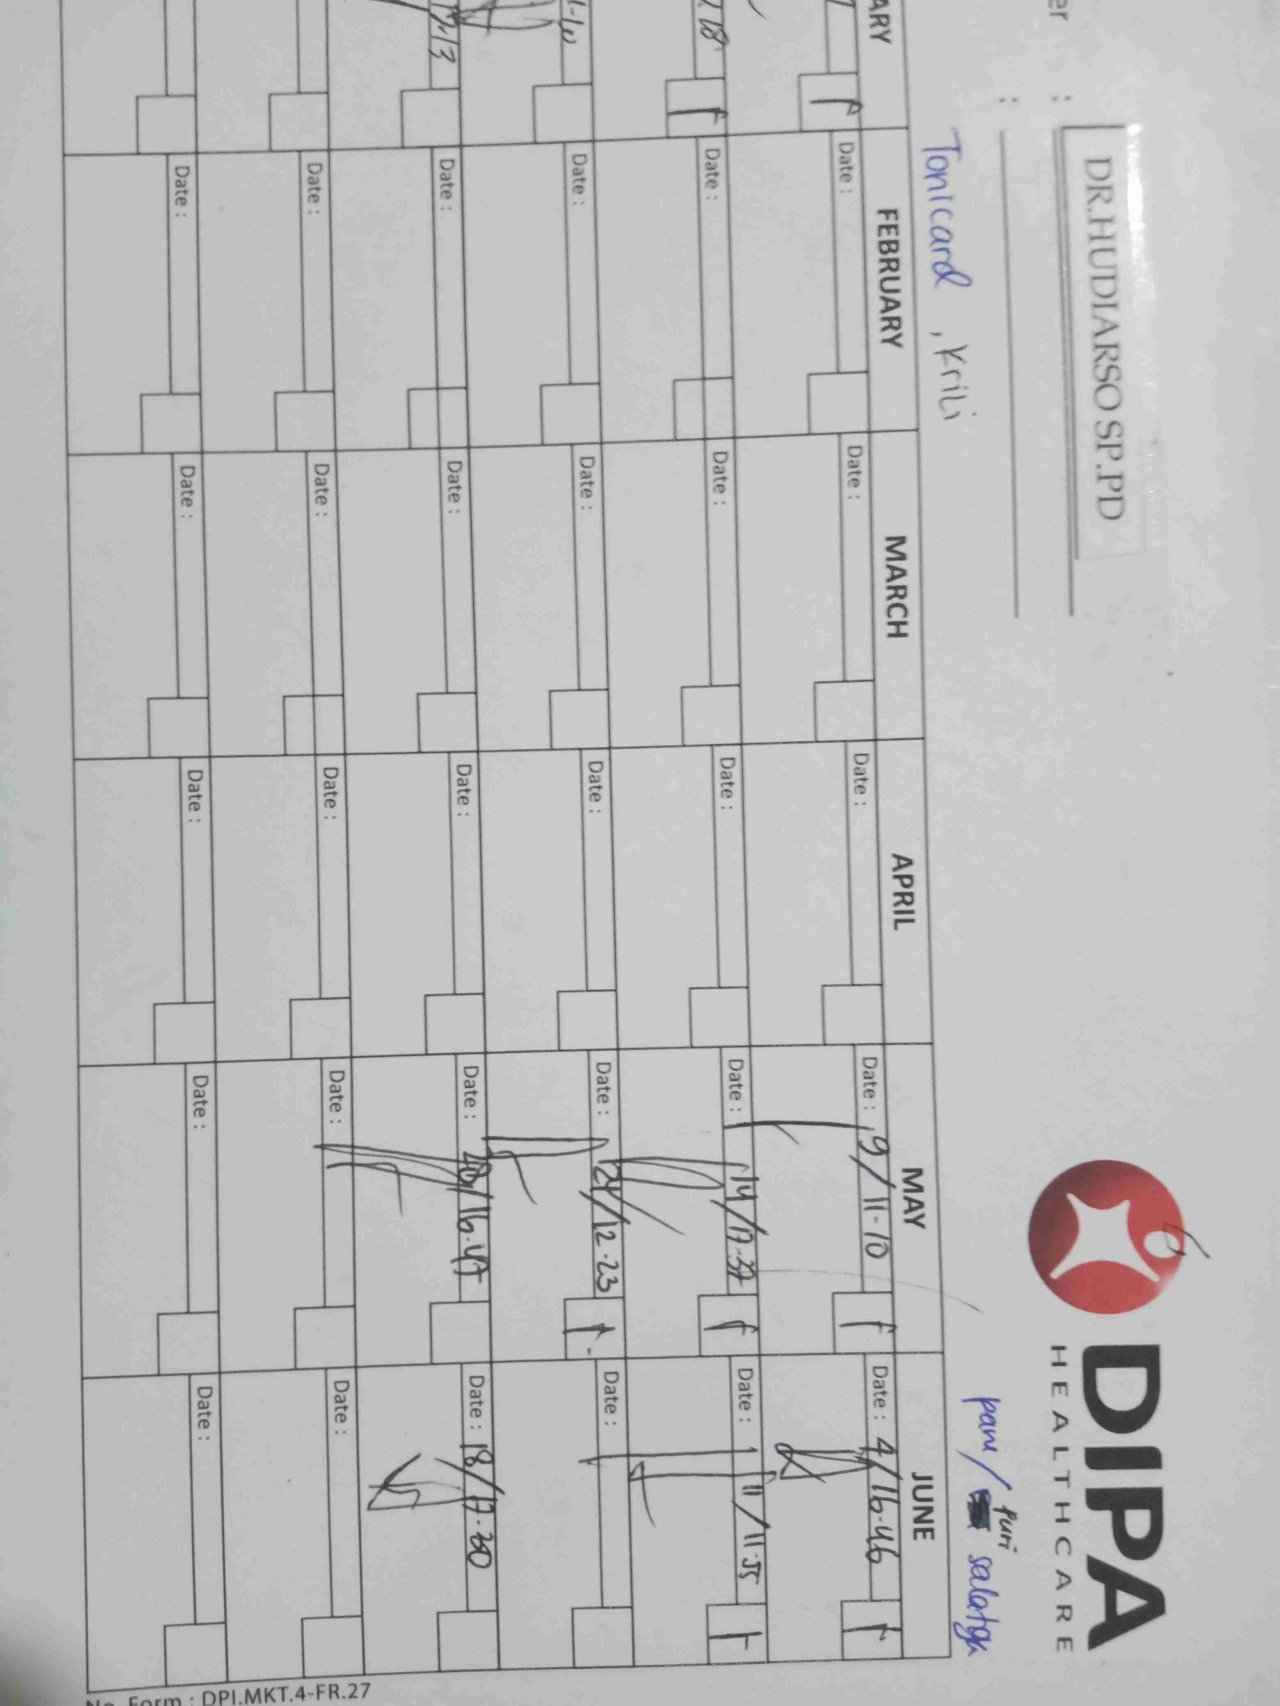 DIPA
HEALTHCARE
er :
DR.HUDIARSO SP.PD
:
Tonicard , Krili
paru / puri salatga
ARY FEBRUARY MARCH APRIL MAY JUNE
Date : Date : Date : Date : 9/11-10 Date : 4/16.46
18 Date : Date : Date : Date : 14/17.37 Date : 11/11.55
Date : Date : Date : Date : 21/12.23 Date :
Date : Date : Date : Date : /16.47 Date : 18/17.30
Date : Date : Date : Date : Date :
Date : Date : Date : Date : Date :
No. Form : DPI.MKT.4-FR.27